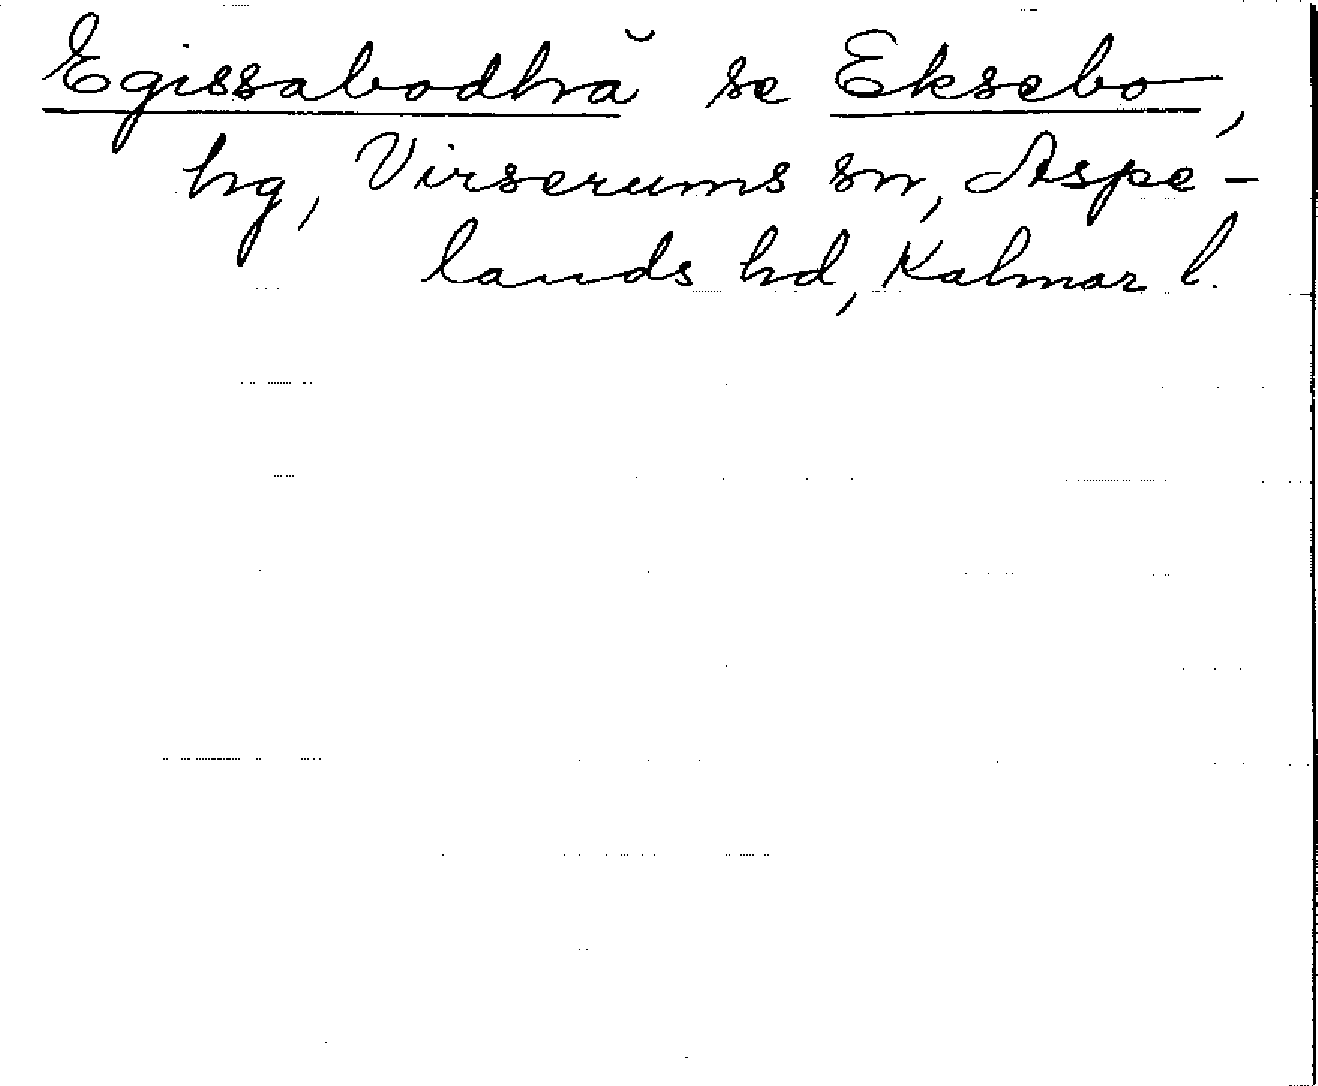 Egissabodhă se Eksebo,
hg, Virserums sn, Aspe-
lands hd, Kalmar l.